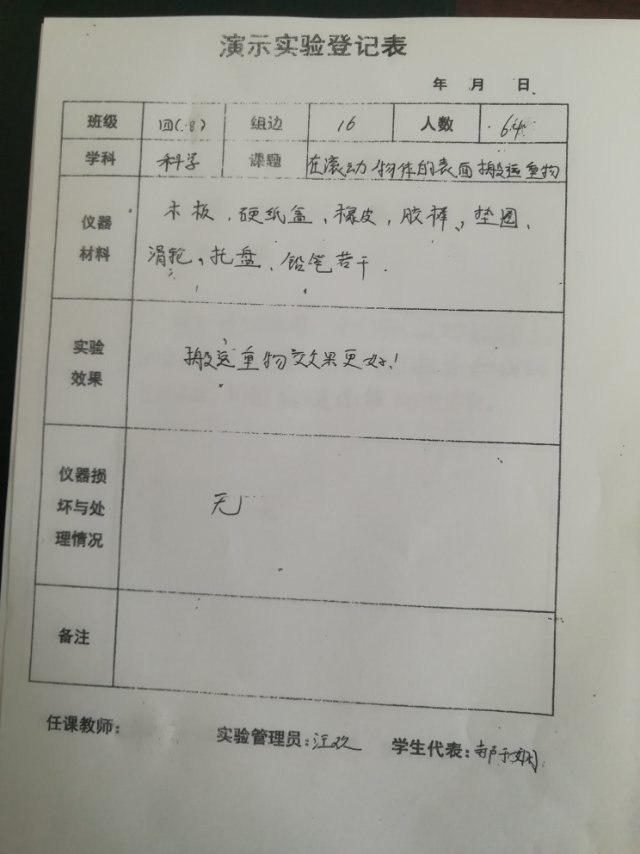 演示实验登记表
年 月 日
班级 四(.8) 组边 16 人数 64
学科 科学 课题 在滚动物体的表面搬运重物
仪器材料 木板、硬纸盒、橡皮、胶棒、垫圈、
滑轮、托盘、铅笔若干.
实验效果 搬运重物效果更好!
仪器损坏与处理情况 无
备注
任课教师: 实验管理员:汪欢 学生代表: